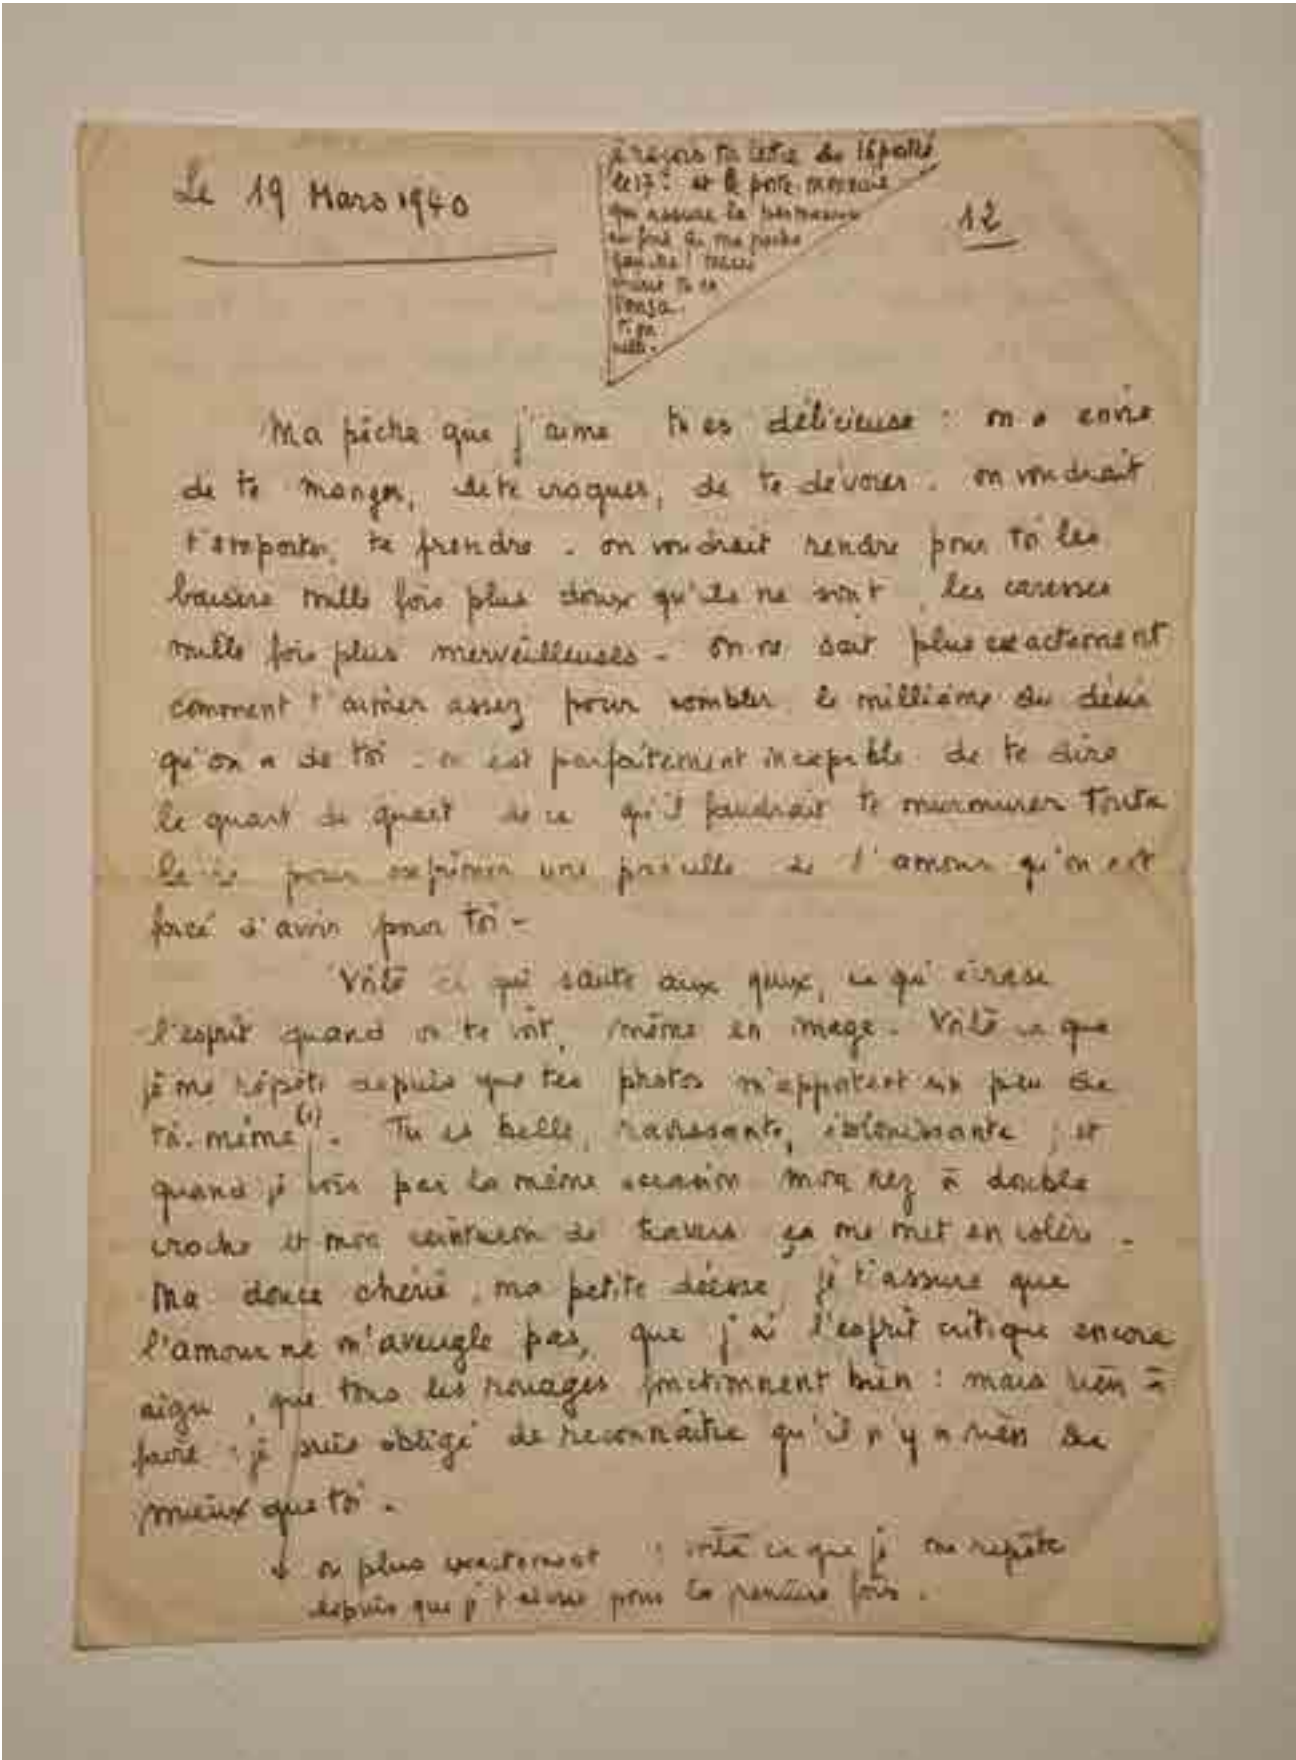 Le 19 Mars 1940
je reçois ta lettre du 16 postée
le 17 : et le porte-monnaie
qui assure la permanence
au fond de ma poche
gauche ! merci
tu es
sensa-
tion
nelle.
12
Ma pêche que j'aime tu es délicieuse : on a envie
de te manger, de te croquer, de te dévorer. on voudrait
t'emporter, te prendre. on voudrait rendre pour toi les
baisers mille fois plus doux qu'ils ne sont, les caresses
mille fois plus merveilleuses - on ne sait plus exactement
comment t'aimer assez pour combler le millième du désir
qu'on a de toi. on est parfaitement incapable de te dire
le quart du quart de ce qu'il faudrait te murmurer toute
la vie pour exprimer une parcelle de l'amour qu'on est
forcé d'avoir pour toi -
Voilà ce qui saute aux yeux, ce qui écrase
l'esprit quand on te voit, même en image. Voilà ce que
je me répète depuis que tes photos m'apportent un peu de
toi-même (1). Tu es belle, ravissante, éblouissante ; et
quand je vois par la même occasion mon nez à double
croche et mon ceinturon de travers ça me met en colère -
Ma douce chérie, ma petite déesse, je t'assure que
l'amour ne m'aveugle pas, que j'ai l'esprit critique encore
aigu, que tous les rouages fonctionnent bien : mais rien à
faire : je suis obligé de reconnaître qu'il n'y a rien de
mieux que toi -
ou plus exactement : voilà ce que je me répète
depuis que je t'ai vue pour la première fois.